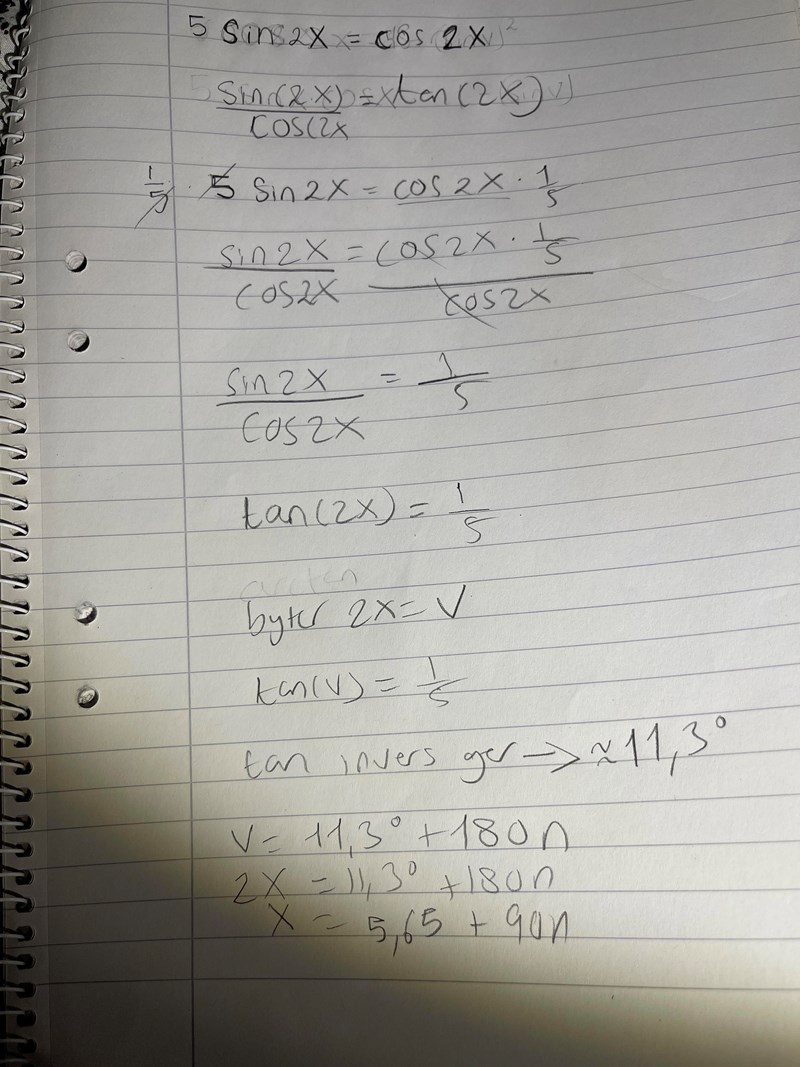 5 sin 2x = cos 2x
sin(2x)/cos(2x = tan(2x)
1/5 · 5 sin 2x = cos 2x · 1/5
sin 2x/cos 2x = cos 2x · 1/5/cos 2x
sin 2x/cos 2x = 1/5
tan(2x) = 1/5
arctan
byter 2x = v
tan(v) = 1/5
tan invers ger → ≈ 11,3°
v = 11,3° + 180n
2x = 11,3° + 180n
x = 5,65 + 90n